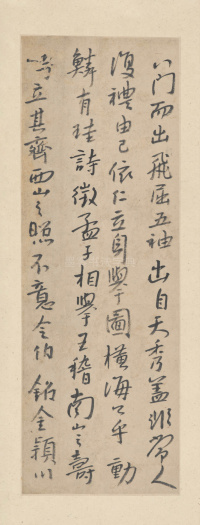 門而出飛屈五袖出自天秀蓋非常人
復禮由己依仁立自學圖横海子乎動
鱗有桂詩徵孟子相學王稽南山之壽
立其齊西山之照不意令伯銘全穎川